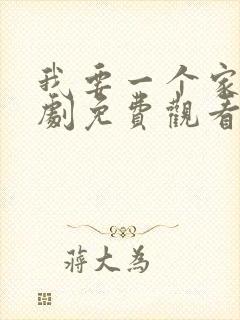 我要一个家
劇免費觀看
蔣大為